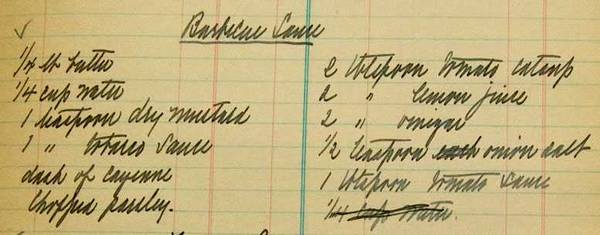 Barbecue Sauce
1/4 lb butter
1/4 cup water
1 teaspoon dry mustard
1 " tobasco Sauce
dash of cayenne
Chopped parsley.
2 tblespoon tomato catsup
2 " lemon juice
2 " vinegar
1/2 teaspoon each onion salt
1 tblespoon tomato sauce
1/4 cup water.